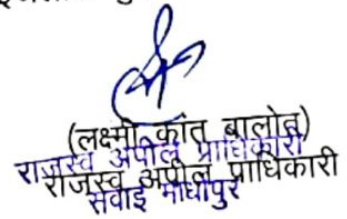 (लक्ष्मी कांत बालोत)
राजस्व अपील प्राधिकारी
राजस्व अपील प्राधिकारी
सवाई माधोपुर